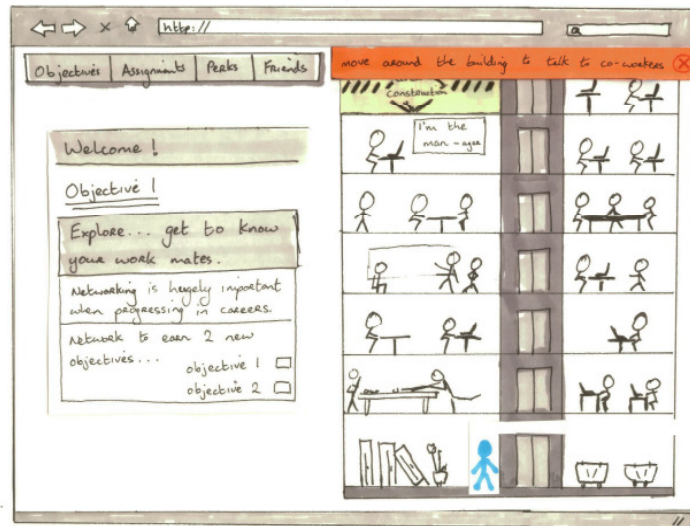 http://
Objectives Assignments Perks Friends
move around the building to talk to co-workers
Construction
I'm the
man-ager
Welcome!
Objective 1
Explore... get to know
your work mates.
Networking is hugely important
when progressing in careers.
Network to earn 2 new
objectives...
objective 1
objective 2